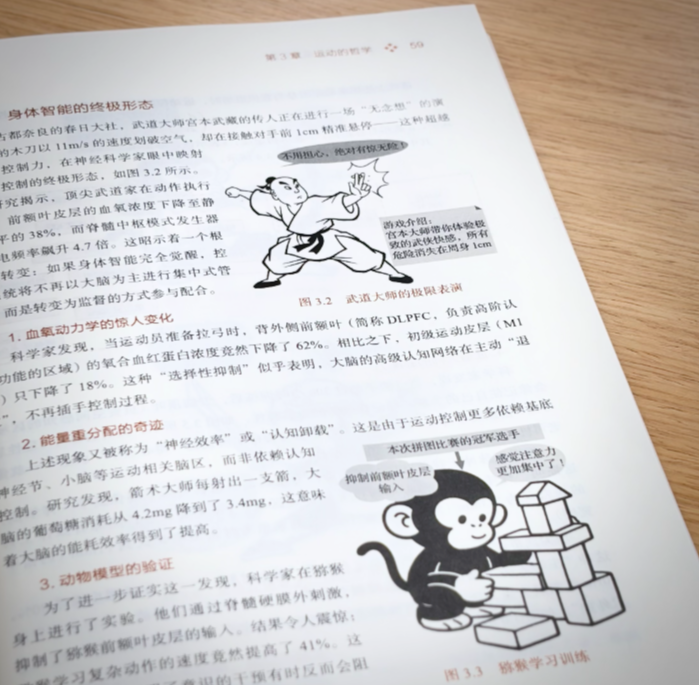 第 3 章 运动的哲学 59
身体智能的终极形态
古都奈良的春日大社，武道大师宫本武藏的传人正在进行一场“无念想”的演
的木刀以 11m/s 的速度划破空气，却在接触对手前 1cm 精准悬停——这种超越
控制力，在神经科学家眼中映射
控制的终极形态，如图 3.2 所示。
研究揭示，顶尖武道家在动作执行
前额叶皮层的血氧浓度下降至静
平的 38%，而脊髓中枢模式发生器
电频率飙升 4.7 倍。这昭示着一个根
转变：如果身体智能完全觉醒，控
统将不再以大脑为主进行集中式管
而是转变为监督的方式参与配合。
不用担心，绝对有惊无险！
游戏介绍：
宫本大师带你体验极
致的武侠快感，所有
危险消失在周身 1cm
图 3.2 武道大师的极限表演
1. 血氧动力学的惊人变化
科学家发现，当运动员准备拉弓时，背外侧前额叶（简称 DLPFC，负责高阶认
功能的区域）的氧合血红蛋白浓度竟然下降了 62%。相比之下，初级运动皮层（M1
）只下降了 18%。这种“选择性抑制”似乎表明，大脑的高级认知网络在主动“退
”，不再插手控制过程。
2. 能量重分配的奇迹
上述现象又被称为“神经效率”或“认知卸载”。这是由于运动控制更多依赖基底
神经节、小脑等运动相关脑区，而非依赖认知
控制。研究发现，箭术大师每射出一支箭，大
脑的葡萄糖消耗从 4.2mg 降到了 3.4mg，这意味
着大脑的能耗效率得到了提高。
本次拼图比赛的冠军选手
抑制前额叶皮层
输入
感觉注意力
更加集中了！
3. 动物模型的验证
为了进一步证实这一发现，科学家在猕猴
身上进行了实验。他们通过脊髓硬膜外刺激，
抑制了猕猴前额叶皮层的输入。结果令人震惊：
猴学习复杂动作的速度竟然提高了 41%。这
意识的干预有时反而会阻
图 3.3 猕猴学习训练